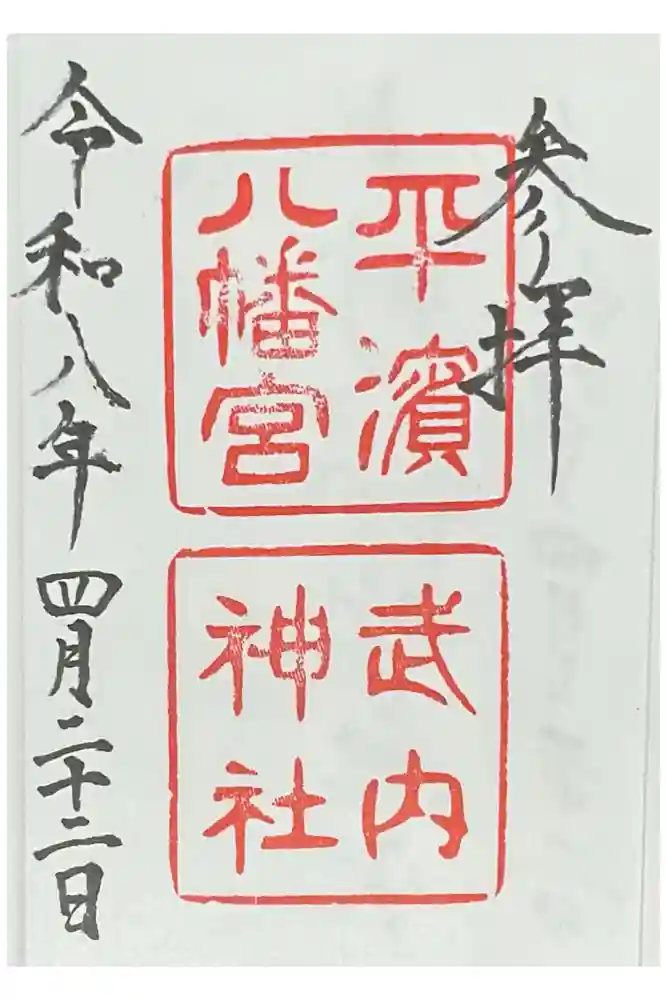 参拝
平濱
八幡宮
武内
神社
令和八年四月二十二日